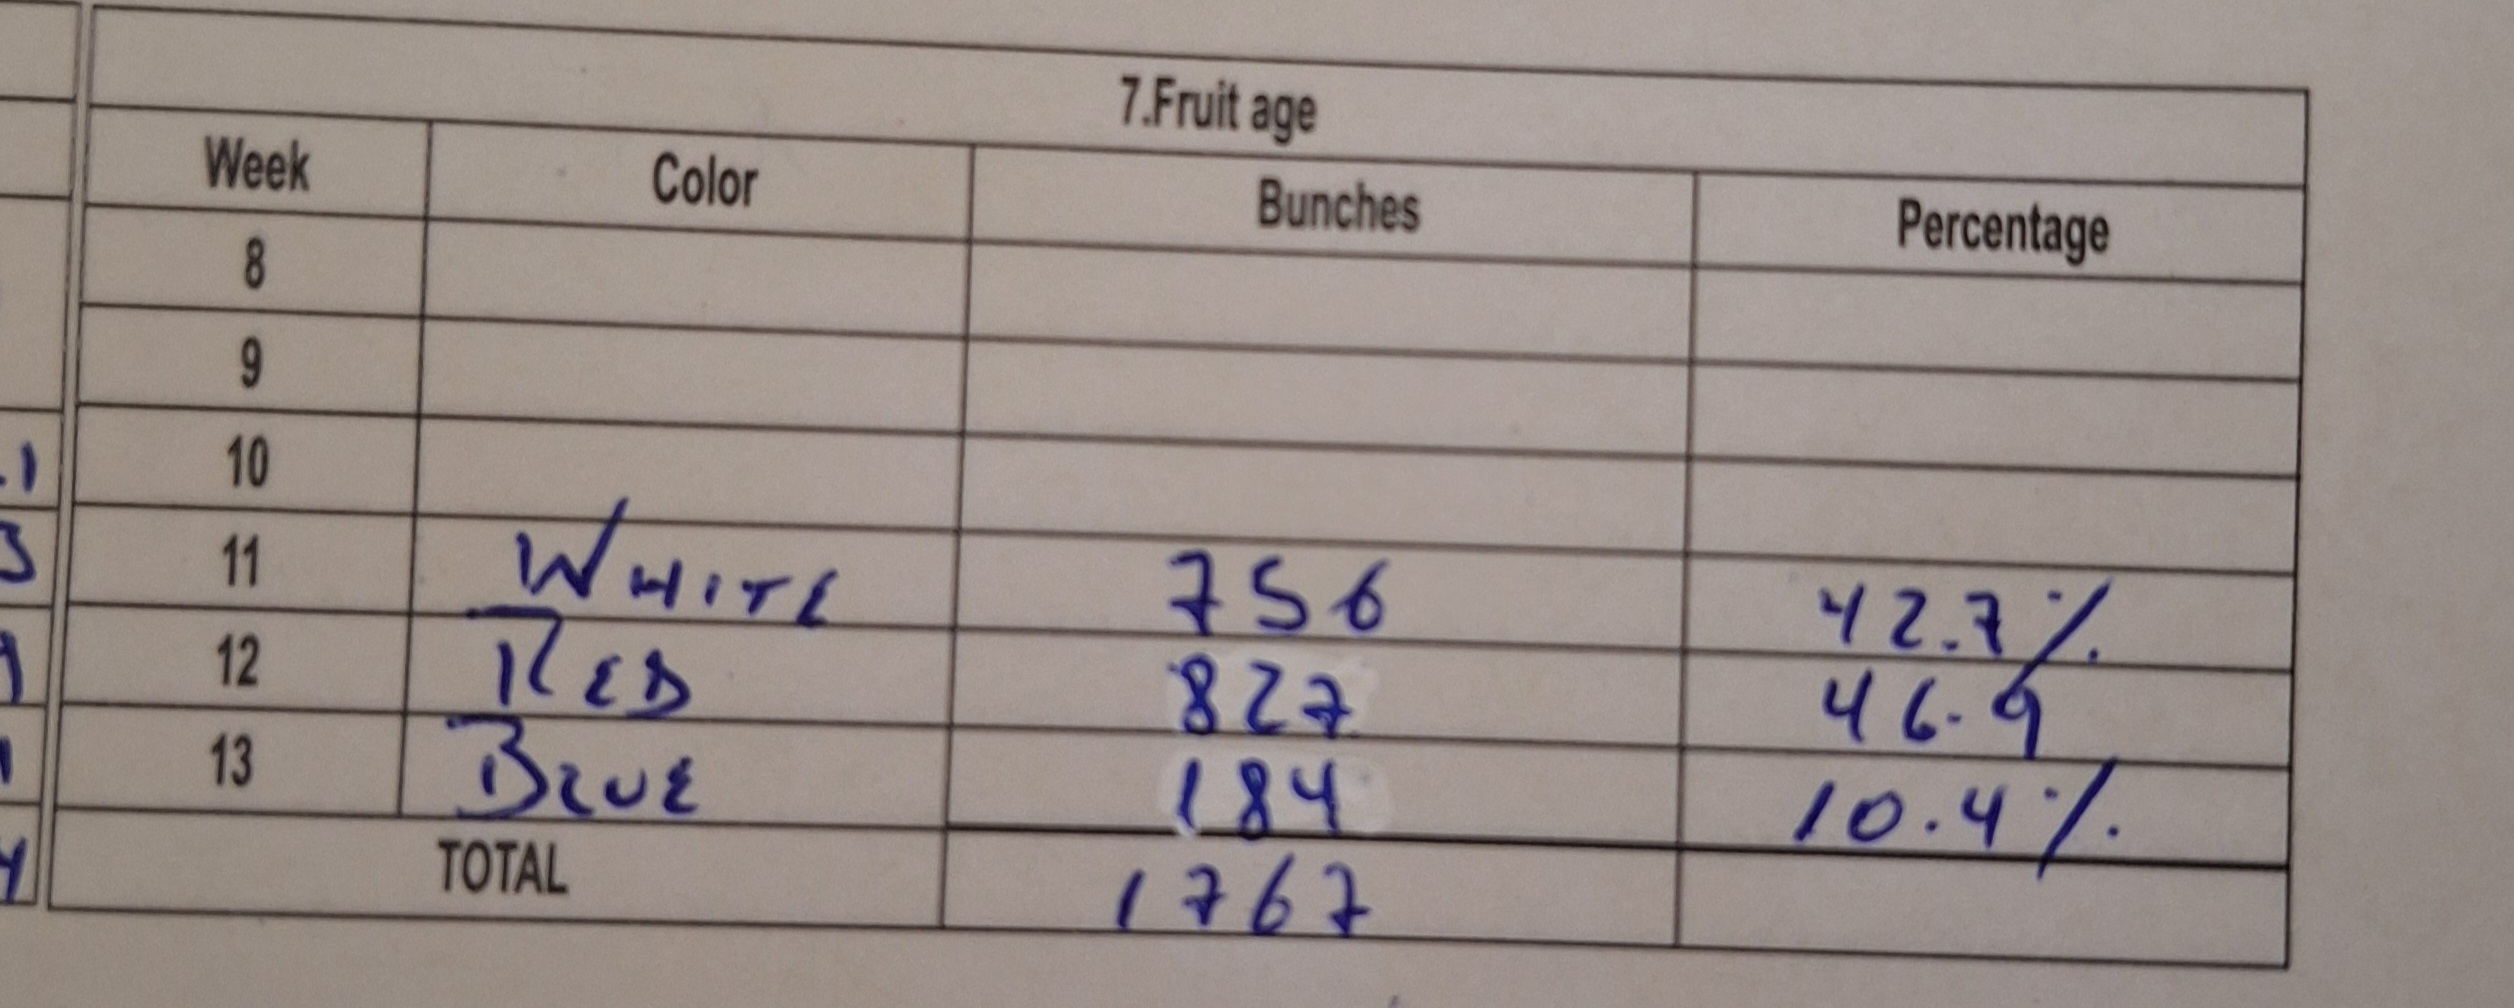 7.Fruit age
Week Color Bunches Percentage
8
9
10
11 WHITE 756 42.7%
12 RED 827 46.9
13 BLUE 184 10.4%
TOTAL 1767